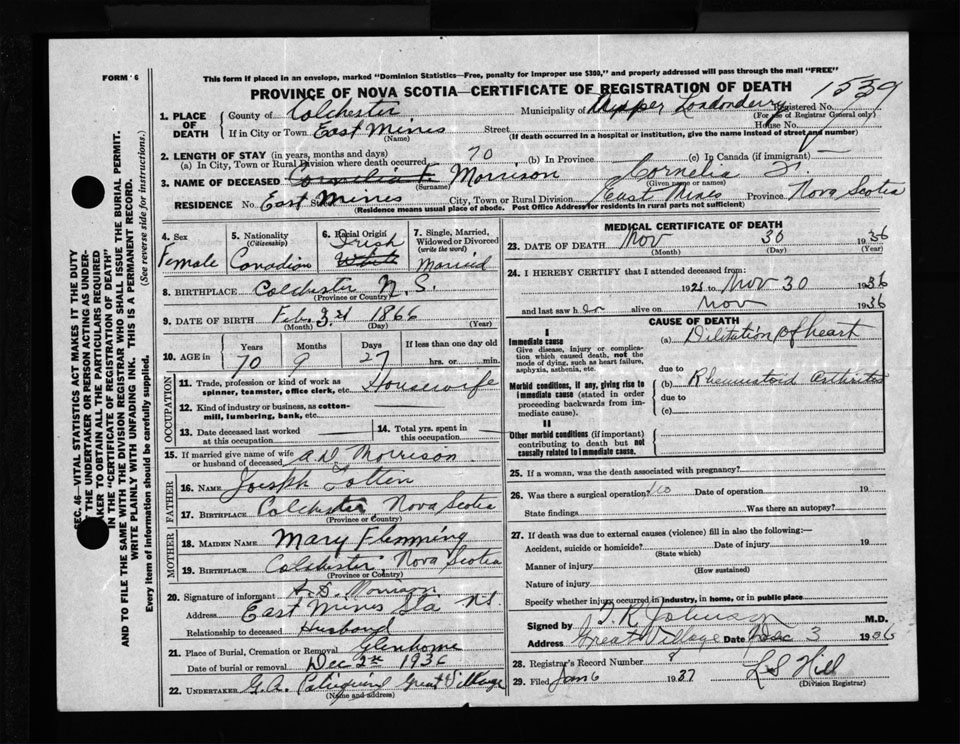 FORM 6
This form if placed in an envelope, marked "Dominion Statistics—Free, penalty for improper use $300," and properly addressed will pass through the mail "FREE"
PROVINCE OF NOVA SCOTIA—CERTIFICATE OF REGISTRATION OF DEATH
1539
Registered No.
(For use of Registrar General only)
1. PLACE OF DEATH
County of Colchester Municipality of Upper Londonderry
If in City or Town East Mines Street House No.
(Name) (If death occurred in a hospital or institution, give the name instead of street and number)
2. LENGTH OF STAY (in years, months and days)
(a) In City, Town or Rural Division where death occurred 70 (b) In Province (c) In Canada (if immigrant) —
3. NAME OF DECEASED Cornelia F. Morrison Cornelia F.
(Surname) (Given name or names)
RESIDENCE No. East Mines Street City, Town or Rural Division East Mines Province Nova Scotia
(Residence means usual place of abode. Post Office Address for residents in rural parts not sufficient)
4. Sex Female
5. Nationality (Citizenship) Canadian
6. Racial Origin Irish White
7. Single, Married, Widowed or Divorced (write the word) Married
8. BIRTHPLACE Colchester N.S.
(Province or Country)
9. DATE OF BIRTH Feb. 3rd 1866
(Month) (Day) (Year)
10. AGE in Years Months Days If less than one day old
70 9 27 hrs. or min.
OCCUPATION
11. Trade, profession or kind of work as spinner, teamster, office clerk, etc. Housewife
12. Kind of industry or business, as cotton-mill, lumbering, bank, etc.
13. Date deceased last worked at this occupation
14. Total yrs. spent in this occupation
15. If married give name of wife or husband of deceased A D Morrison
FATHER
16. NAME Joseph
17. BIRTHPLACE Colchester, Nova Scotia
(Province or Country)
MOTHER
18. MAIDEN NAME Mary Flemming
19. BIRTHPLACE Colchester, Nova Scotia
(Province or Country)
20. Signature of informant A. D. Morrison
Address East Mines Sta N.S.
Relationship to deceased Husband
21. Place of Burial, Cremation or Removal Glenholme
Date of burial or removal Dec 2nd 1936
22. UNDERTAKER G.A. Great Village
(Name and address)
MEDICAL CERTIFICATE OF DEATH
23. DATE OF DEATH Nov 30 1936
(Month) (Day) (Year)
24. I HEREBY CERTIFY that I attended deceased from:
1921 to Nov 30 1936
and last saw her alive on Nov 1936
CAUSE OF DEATH
I
Immediate cause
Give disease, injury or complication which caused death, not the mode of dying, such as heart failure, asphyxia, asthenia, etc.
(a) Dilitation of heart
due to
Morbid conditions, if any, giving rise to immediate cause (stated in order proceeding backwards from immediate cause).
(b) Rheumatoid Arthritis
due to
(c)
II
Other morbid conditions (if important) contributing to death but not causally related to immediate cause.
25. If a woman, was the death associated with pregnancy?
26. Was there a surgical operation? no Date of operation 19
State findings Was there an autopsy?
27. If death was due to external causes (violence) fill in also the following:—
Accident, suicide or homicide? Date of injury 19
(State which)
Manner of injury
(How sustained)
Nature of injury
Specify whether injury occurred in industry, in home, or in public place
Signed by T. R. Johnson M.D.
Address Great Village Date Dec 3 1936
28. Registrar's Record Number 8
29. Filed Jan 6 1937 L S Hill
(Division Registrar)
SEC. 46—VITAL STATISTICS ACT MAKES IT THE DUTY
THE UNDERTAKER OR PERSON ACTING AS UNDER-
TAKER TO OBTAIN ALL THE PARTICULARS REQUIRED
IN THE "CERTIFICATE OF REGISTRATION OF DEATH"
AND TO FILE THE SAME WITH THE DIVISION REGISTRAR WHO SHALL ISSUE THE BURIAL PERMIT.
WRITE PLAINLY WITH UNFADING INK. THIS IS A PERMANENT RECORD.
Every item of information should be carefully supplied. (See reverse side for instructions.)